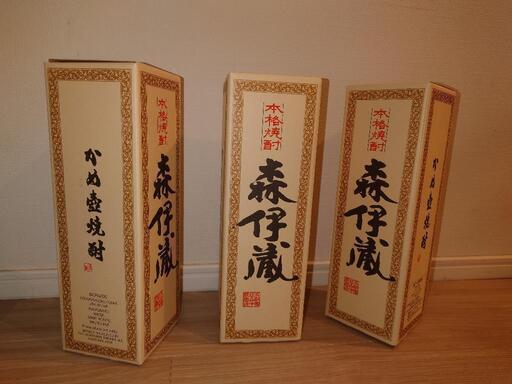 かめ壺焼酎
本格焼酎
森伊蔵
本格焼酎
森伊蔵
本格焼酎
森伊蔵
かめ壺焼酎